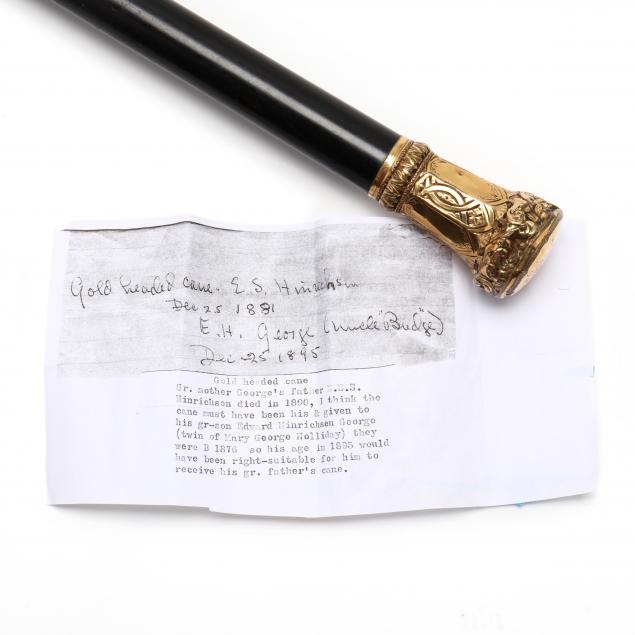 Gold headed cane. E. S. Hinrichsen
Dec 25 1881
E. H. George (Uncle "Budge")
Dec-25 1895
Gold headed cane
Gr. mother George's father E.E.S.
Hinrichsen died in 1890, I think the
cane must have been his & given to
his gr-son Edward Hinrichsen George
(twin of Mary George Holliday) they
were B 1876 so his age in 1895 would
have been right-suitable for him to
receive his gr. father's cane.